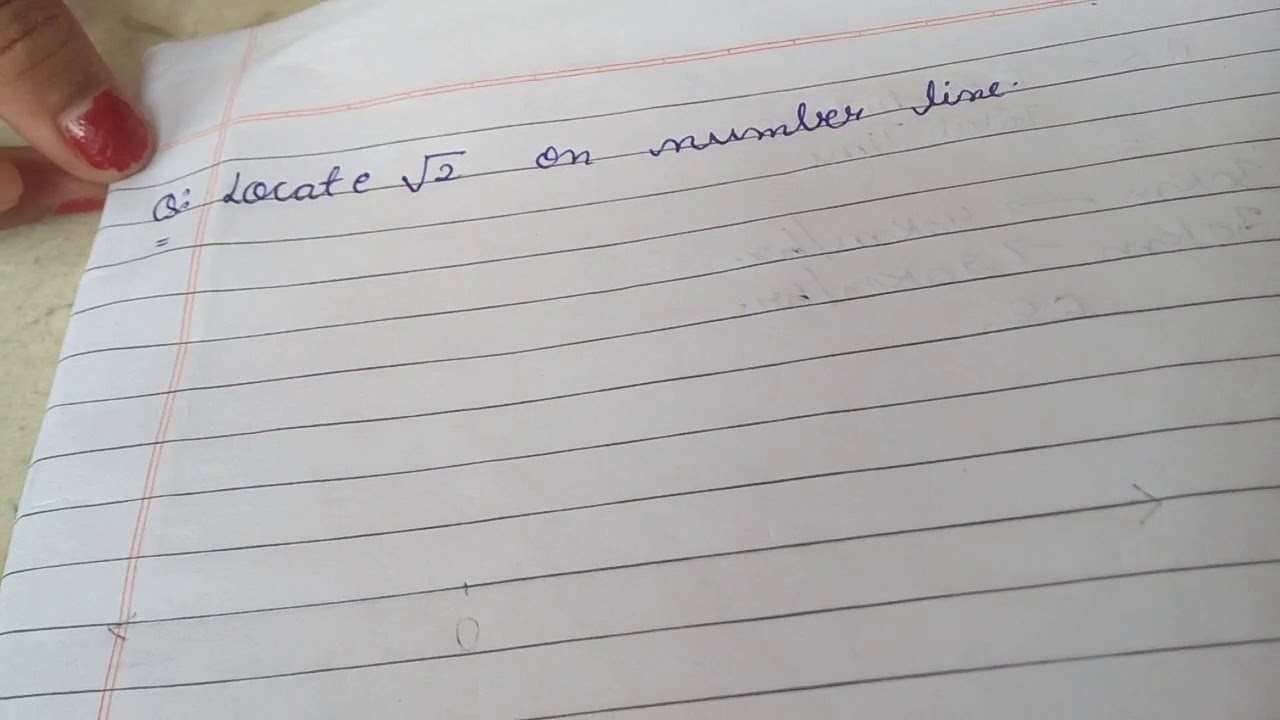 Q: Locate √2 on number line.
0